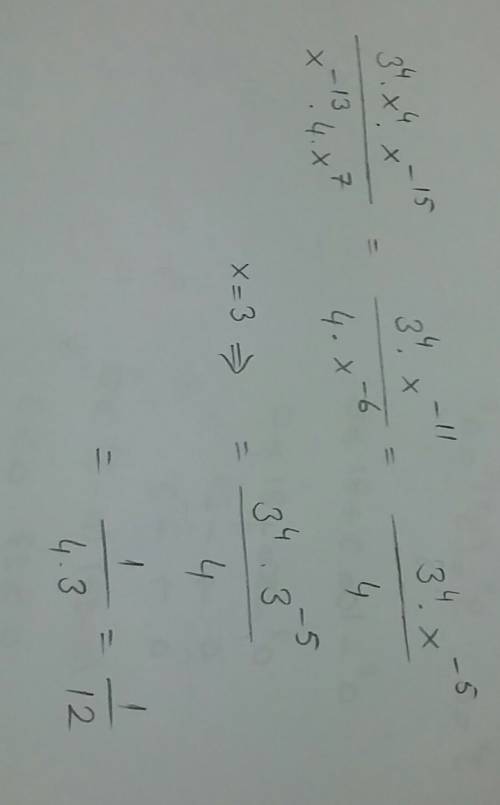 3⁴·x⁴·x⁻¹⁵ / x⁻¹³·4·x⁷ = 3⁴·x⁻¹¹ / 4·x⁻⁶ = 3⁴·x⁻⁵ / 4
x=3 ⇒ = 3⁴·3⁻⁵ / 4
= 1 / 4·3 = 1 / 12